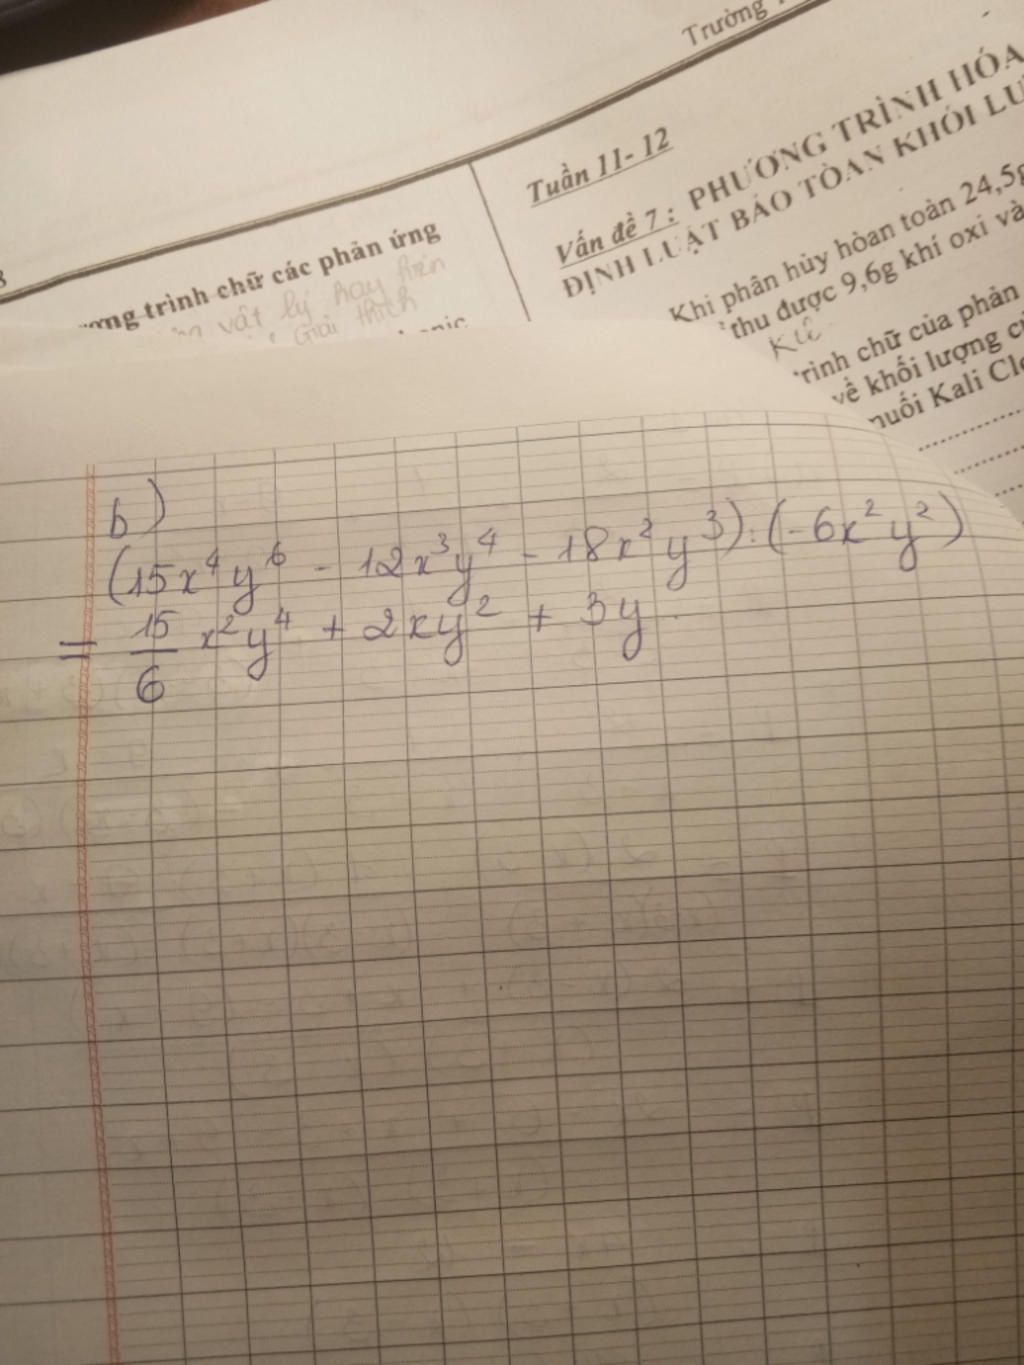 Trường
Tuần 11- 12
Vấn đề 7 : PHƯƠNG TRÌNH HÓA
ĐỊNH LUẬT BẢO TÒAN KHỐI LƯ
Khi phân hủy hòan toàn 24,5g
thu được 9,6g khí oxi và
trình chữ của phản
về khối lượng c
muối Kali Clo
8
ương trình chữ các phản ứng
vật lý hay hiện
Giải thích
b)
(15x⁴y⁶ - 12x³y⁴ - 18x²y³) : (-6x²y²)
= 15/6 x²y⁴ + 2xy² + 3y